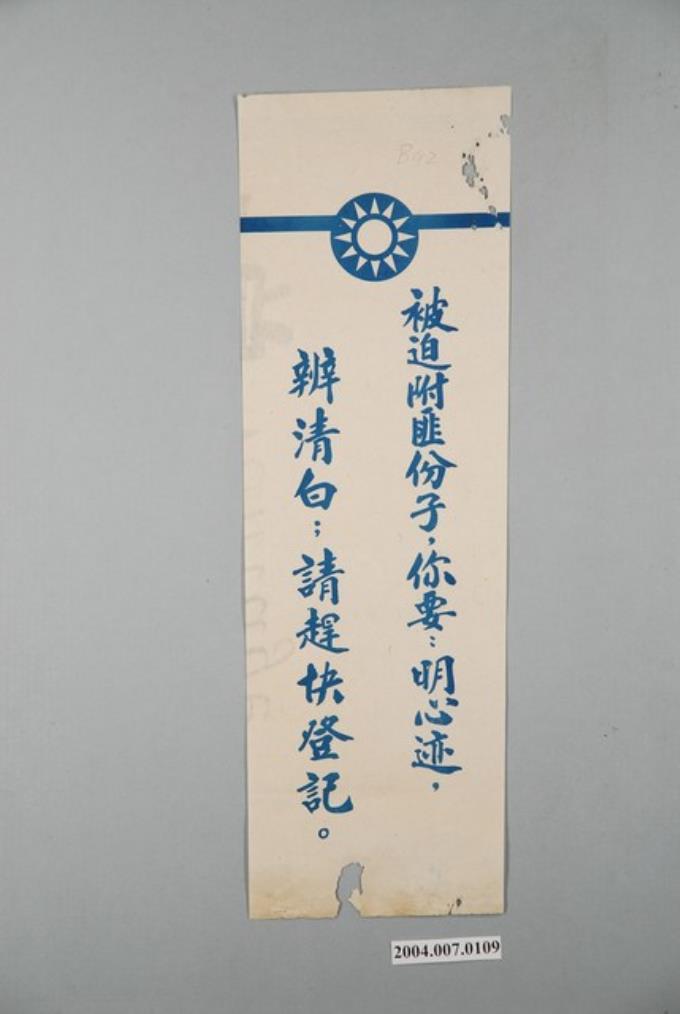 B92
被迫附匪份子，你要：明心迹，
辦清白；請趕快登記。
2004.007.0109